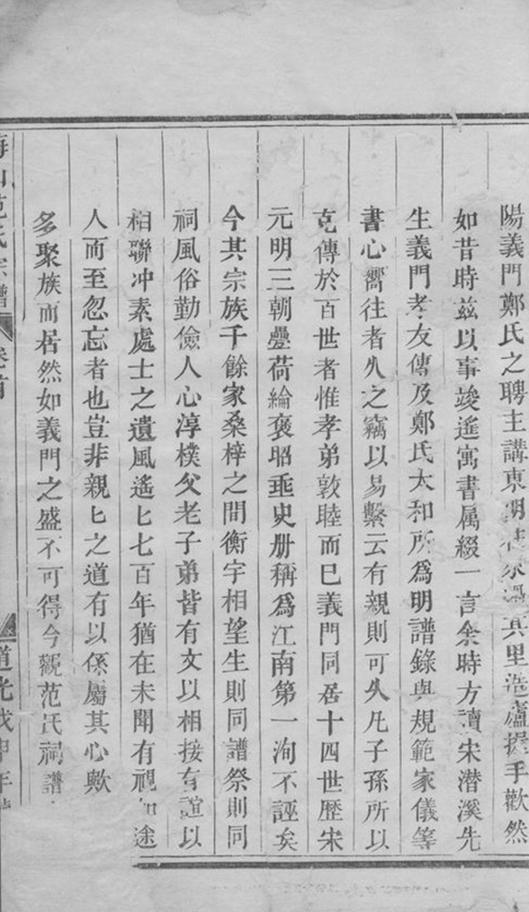 陽義門鄭氏之聘主講東明書院過其里造廬握手歡然
如昔時茲以事竣遙寓書属綴一言余時方讀宋潛溪先
生義門孝友傳及鄭氏太和所爲明譜錄與規範家儀等
書心嚮往者久之竊以易繫云有親則可久凡子孫所以
克傳於百世者惟孝弟敦睦而已義門同居十四世歷宋
元明三朝疊荷綸褒昭垂史册稱爲江南第一洵不誣矣
今其宗族千餘家桑梓之間衡宇相望生則同譜祭則同
祠風俗勤儉人心淳樸父老子弟皆有文以相接有誼以
相聯冲素處士之遺風遙匕七百年猶在未聞有視如途
人而至忽忘者也豈非親匕之道有以係屬其心歟
多聚族而居然如義門之盛不可得今觀范氏祠譜
范氏宗譜 卷首 道光戊申年